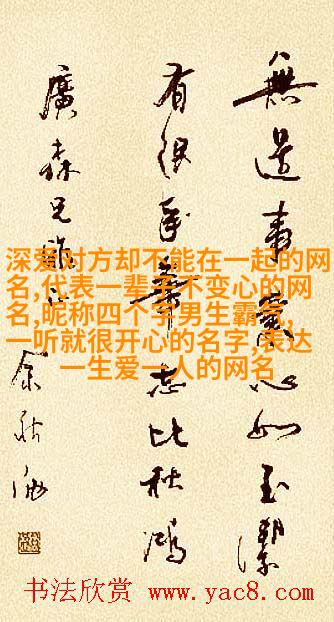 無事心如玉潔
有志比秋鴻
廣森兄
深爱对方却不能在一起的网
名,代表一辈子不变心的网
名,昵称四个字男生霸气,
一听就很开心的名字,表达
一生爱一人的网名
书法欣赏 www.yac8.com